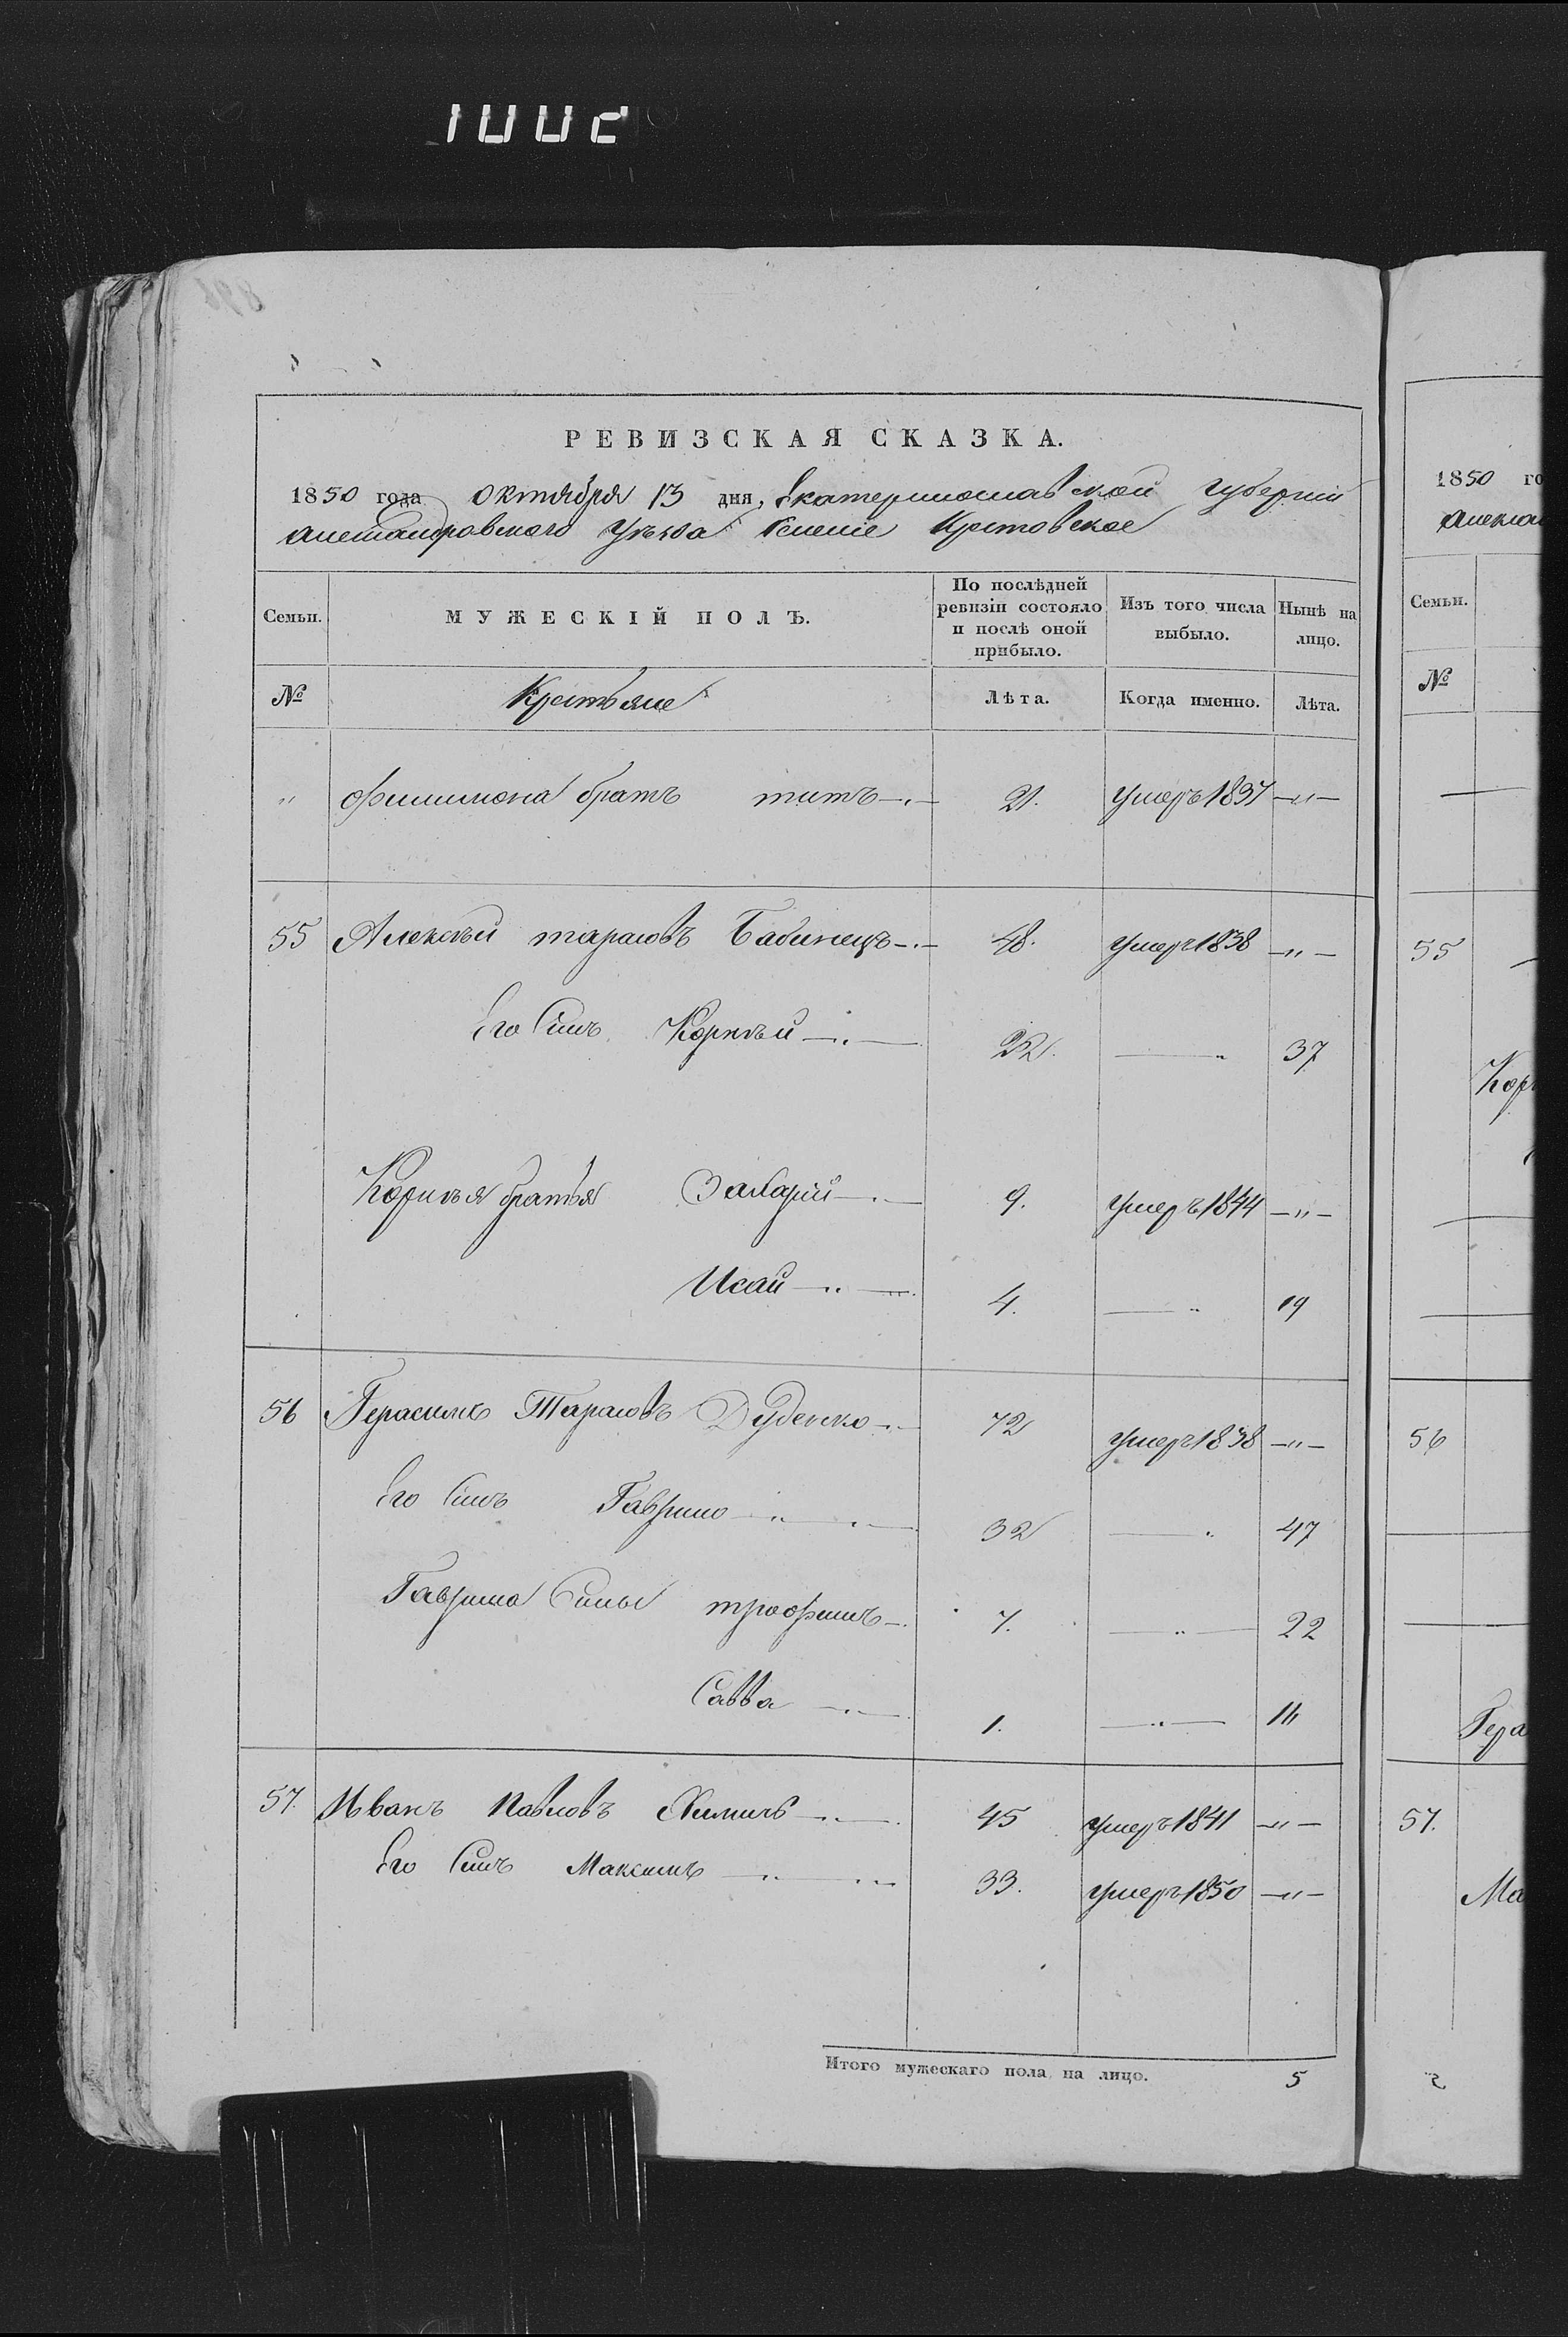 1002
РЕВИЗСКАЯ СКАЗКА.
1850 года октября 13 дня, Екатеринославской губерніи
Александровского уѣзда Селеніе Крестовское
Семьи. МУЖЕСКІЙ ПОЛЪ. По послѣдней ревизіи состояло и послѣ оной прибыло. Изъ того числа выбыло. Нынѣ на лицо.
№ Крестьяне Лѣта. Когда именно. Лѣта.
" Филимона братъ титъ 21. умеръ 1837 —"—
55 Алексѣй тарасовъ Бабинецъ 48. умеръ 1838 —"—
Его Сынъ Корнѣй 22. —"— 37
Корнѣя братья Захарій 9. умеръ 1844 —"—
Исай 4. —"— 19
56 Герасимъ Тарасовъ Дуденко 72 умеръ 1838 —"—
Его Сынъ Гаврило 32 —"— 47
Гаврила Сыны трофимъ 7. —"— 22
Савва 1. —"— 16
57. Иванъ Павловъ Химичъ 45 умеръ 1841 —"—
Его Сынъ Максимъ 33. умеръ 1850 —"—
Итого мужескаго пола на лицо. 5
1850 го
Алекса
Семьи.
№
55
Кор
56
Гера
57.
Ма